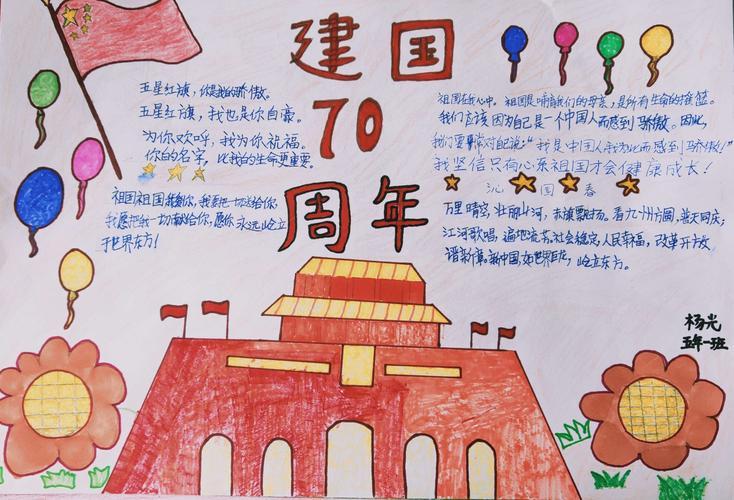 建国
70
周年
五星红旗，你是我的骄傲。
五星红旗，我也是你自豪。
为你欢呼，我为你祝福。
你的名字，比我的生命更重要。
祖国祖国我爱你，我要把一切给你，
我愿把我一切献给你，愿你永远屹立
于世界东方！
祖国在我心中。祖国是哺育我们的母亲，是所有生命的摇篮。
我们应该因为自己是一个中国人而感到骄傲。因此，
我们要常常对自己说：“我是中国人我为此而感到骄傲！”
我坚信只有心系祖国才会健康成长！
沁园春
万里晴空，壮丽山河，赤旗飘扬。看九州方圆，普天同庆；
江河歌唱，遍地流芳。社会稳定，人民幸福，改革开放
谱新章。新中国，如世界巨龙，屹立东方。
杨光
五年一班